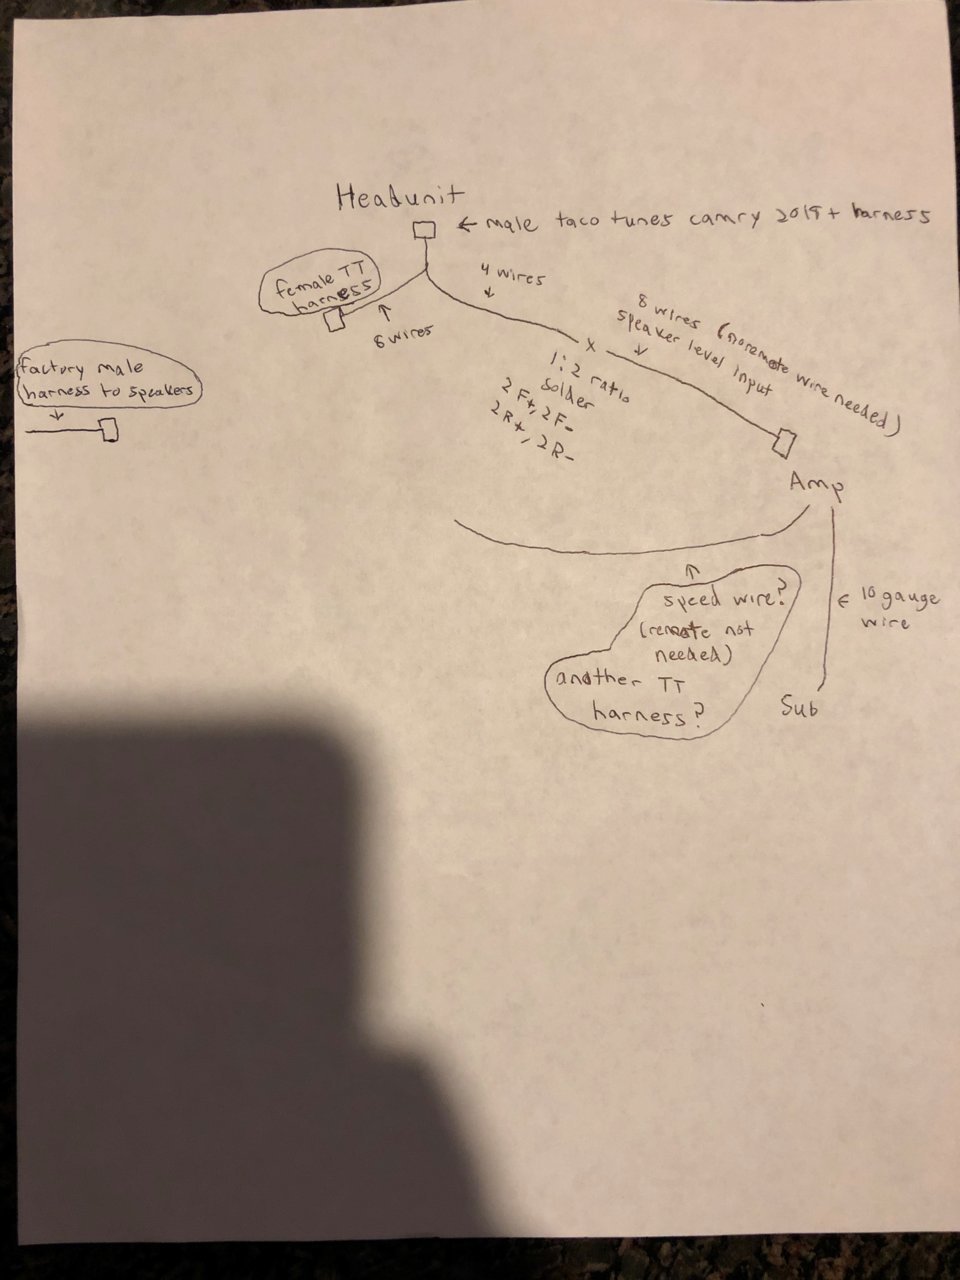 Headunit
← male taco tunes camry 2018+ harness
female TT
harness
6 wires
4 wires
8 wires (no remote wire needed)
speaker level input
x
1:2 ratio
solder
2F+, 2F-
2R+, 2R-
factory male
harness to speakers
Amp
speed wire?
(remote not
needed)
another TT
harness?
← 10 gauge
wire
Sub